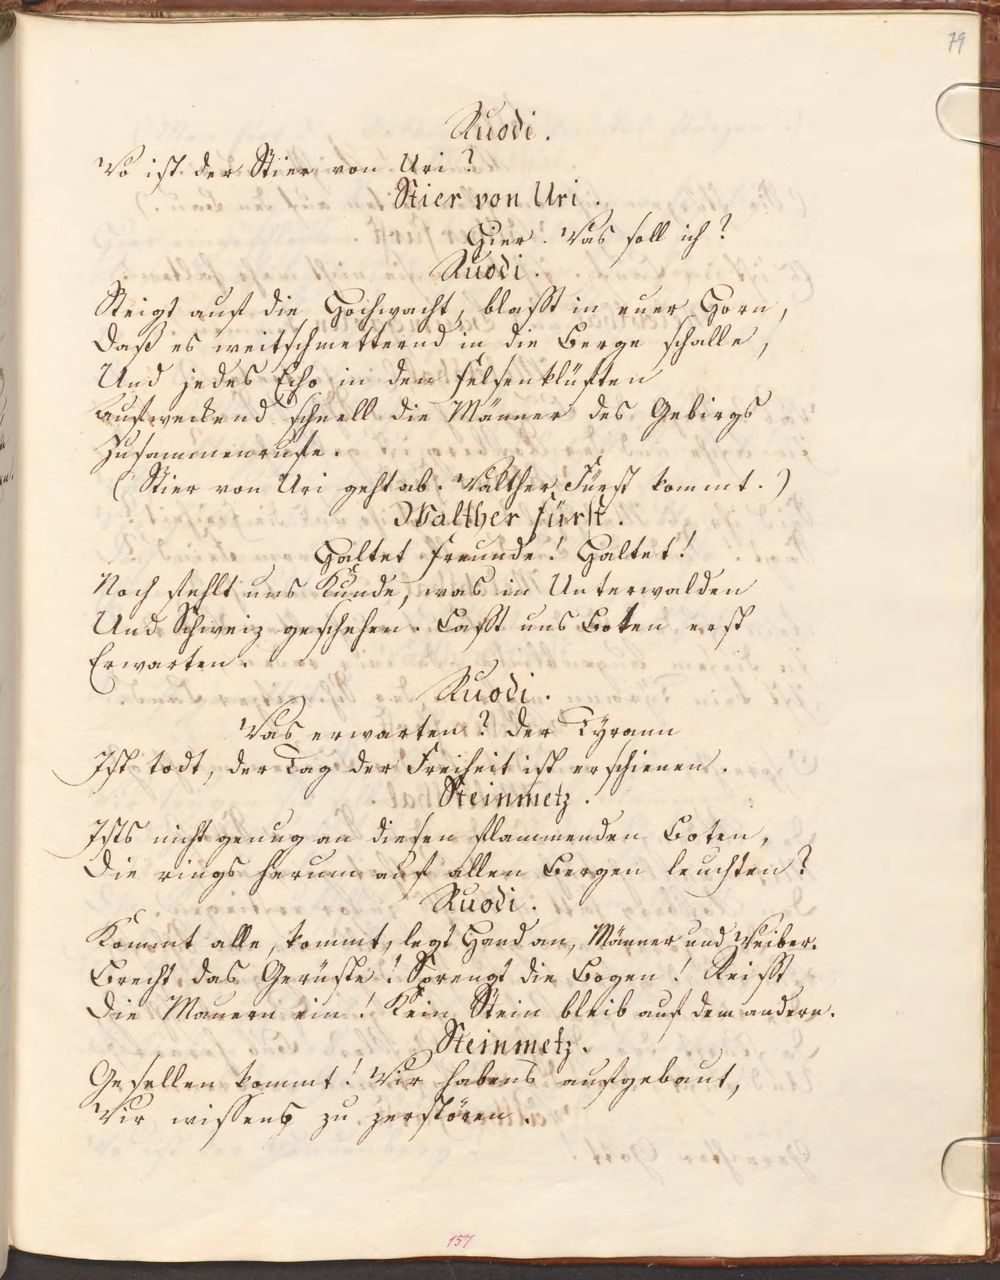 79
Ruodi.
Wo ist der Stier von Uri?
Stier von Uri.
Hier. Was soll ich?
Ruodi.
Steigt auf die Hochwacht, blasst in euer Horn,
Daß es weitschmetternd in die Berge schalle,
Und jedes Echo in den Felsenklüften
Aufweckend schnell die Männer des Gebirgs
Zusammenrufe.
(Stier von Uri geht ab. Walther Fürst kommt.)
Walther Fürst.
Haltet Freunde! Haltet!
Noch fehlt uns Kunde, was in Unterwalden
Und Schweiz geschehen. Lasst uns Boten erst
Erwarten.
Ruodi.
Was erwarten? Der Tÿrann
Ist todt, der Tag der Freiheit ist erschienen.
Steinmetz.
Ists nicht genug an diesen flammenden Boten,
Die rings herum auf allen Bergen leuchten?
Ruodi.
Kommt alle, kommt, legt Hand an, Männer und Weiber.
Brecht das Gerüste! Sprengt die Bogen! Reisst
Die Mauern ein! Kein Stein bleib auf dem andern.
Steinmetz.
Gesellen kommt! Wir habens aufgebaut,
Wir wissens zu zerstören.
157